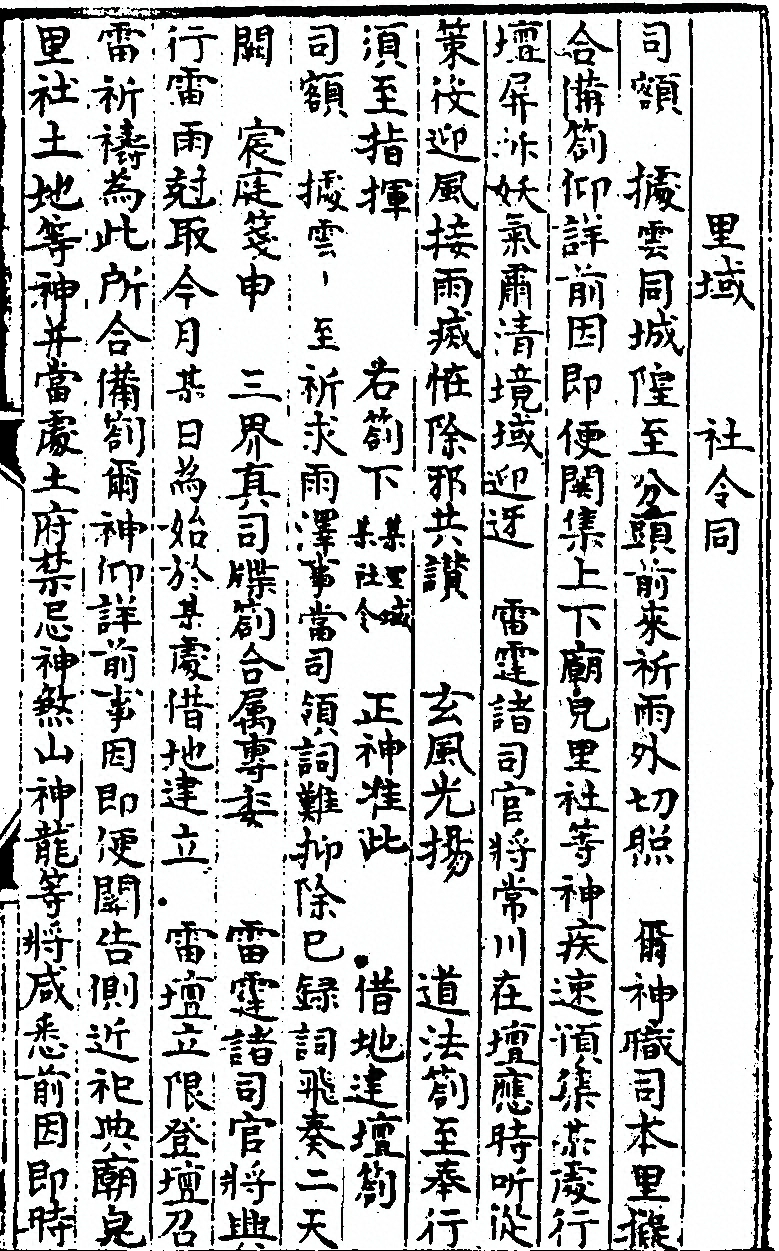 里域　社令同
司額　據雲同城隍至分頭前來祈雨外切照　爾神職司本里擬
合備劄仰詳前因即便関集上下廟皃里社等神疾速湏集某處行
壇屏沴妖氣肅清境域迎迓　雷霆諸司官將常川在壇應時听從
策役迎風接雨瘷恠除邪共讃　玄風光揚　道法劄至奉行
湏至指揮　右劄下某里域某社令　正神准此　借地建壇劄
司額　據雲〻至祈求雨澤事當司領詞難抑除已録詞飛奏二天
闕　宸庭箋申　三界真司牒劄合属專委　雷霆諸司官將興
行雷雨尅取今月某日為始於某處借地建立　雷壇立限登壇召
雷祈禱為此所合備劄爾神仰詳前事因即便関告側近祀典廟皃
里社土地等神并當處土府禁忌神煞山神龍等將咸悉前因即時